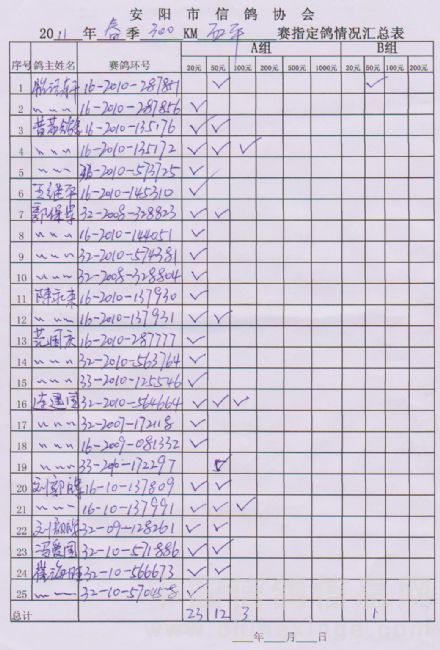 安阳市信鸽协会
2011年春季300KM西平赛指定鸽情况汇总表
序号 鸽主姓名 赛鸽环号 A组 B组
20元 50元 100元 200元 300元 500元 1000元 20元 50元 100元 200元
1 16-2010-287851 ✓ ✓
2 〃 〃 〃 16-2010-287856 ✓
3 16-2010-135176 ✓ ✓
4 〃 〃 〃 16-2010-135172 ✓ ✓ ✓
5 〃 〃 〃 16-2010-573725 ✓
6 王继平 16-2010-145310 ✓
7 郭保安 32-2008-328823 ✓ ✓
8 〃 〃 〃 16-2010-144051 ✓
9 〃 〃 〃 32-2010-574381 ✓
10 〃 〃 〃 32-2008-328804 ✓
11 陈永荣 16-2010-137930 ✓
12 〃 〃 〃 16-2010-137931 ✓ ✓
13 范国庆 16-2010-287777 ✓
14 〃 〃 〃 32-2010-563764 ✓
15 〃 〃 〃 33-2010-125546 ✓
16 连建国 32-2010-564664 ✓ ✓ ✓
17 〃 〃 〃 32-2007-172118 ✓
18 〃 〃 〃 16-2009-081332 ✓
19 〃 〃 〃 ✓
20 16-10-137809 ✓ ✓
21 〃 〃 〃 16-10-137991 ✓ ✓ ✓
22 32-09-128261 ✓ ✓
23 冯爱国 32-10-571886 ✓ ✓
24 崔海旺 32-10-566673 ✓ ✓
25 〃 〃 〃 32-10-570458 ✓
总计 23 12 3 1
年 月 日